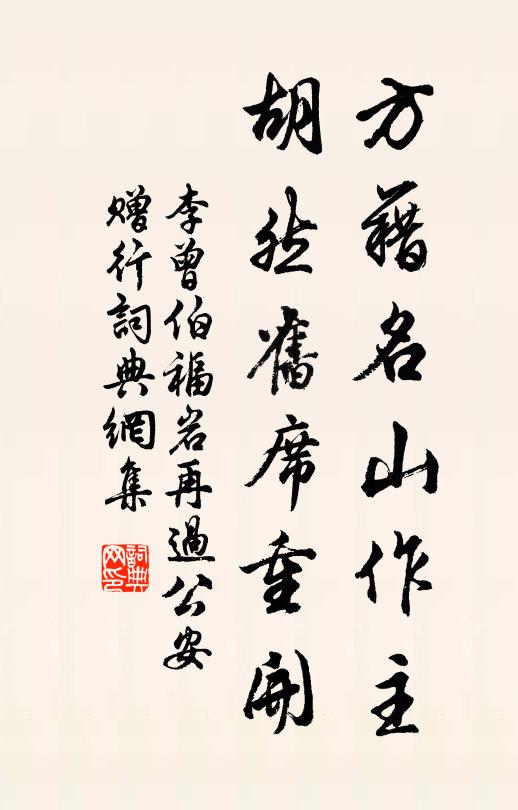 方藉名山作主
胡然舊席重開
李曾伯福岩再過公安
赠行詞典網集
詞典
网印